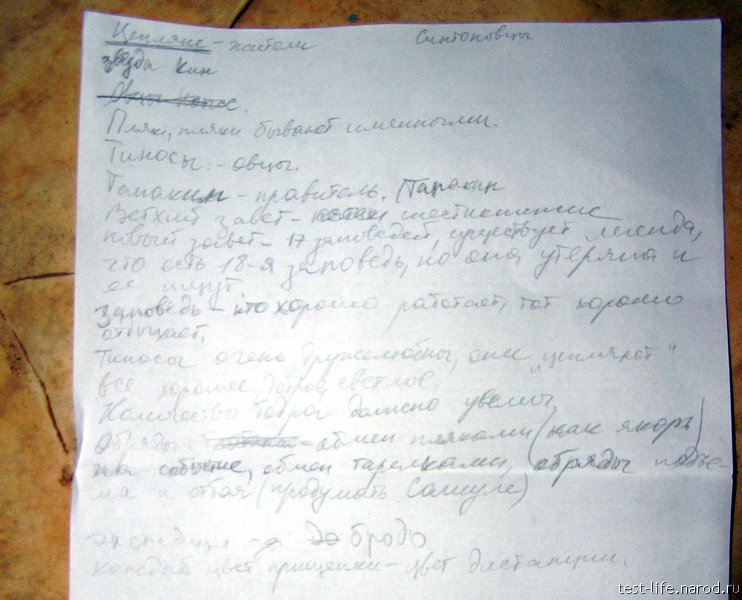 Цепляне - жители Синтоновцы
звезда Кин
Овцы
Пляки, пляки бывают именными.
Тиносы - овцы.
Тамакин - правитель. Таракин
Ветхий завет -
новый завет - 17 заповедей, существует легенда,
что есть 18-я заповедь, но она утеряна и
её ищут
заповедь - кто хорошо работает, тот хорошо
отдыхает.
Тиносы очень дружелюбны, они "цепляют"
все хорошее, доброе, светлое.
Количество добра должно увелич
Обряды: обмен пляками (как якорь)
на событие, обмен тарелками, обряды подъе-
ма и отбоя (продумать Самуле)
экспедиция за Добродо
каждый цвет прищепки - цвет дистанции.
test-life.narod.ru